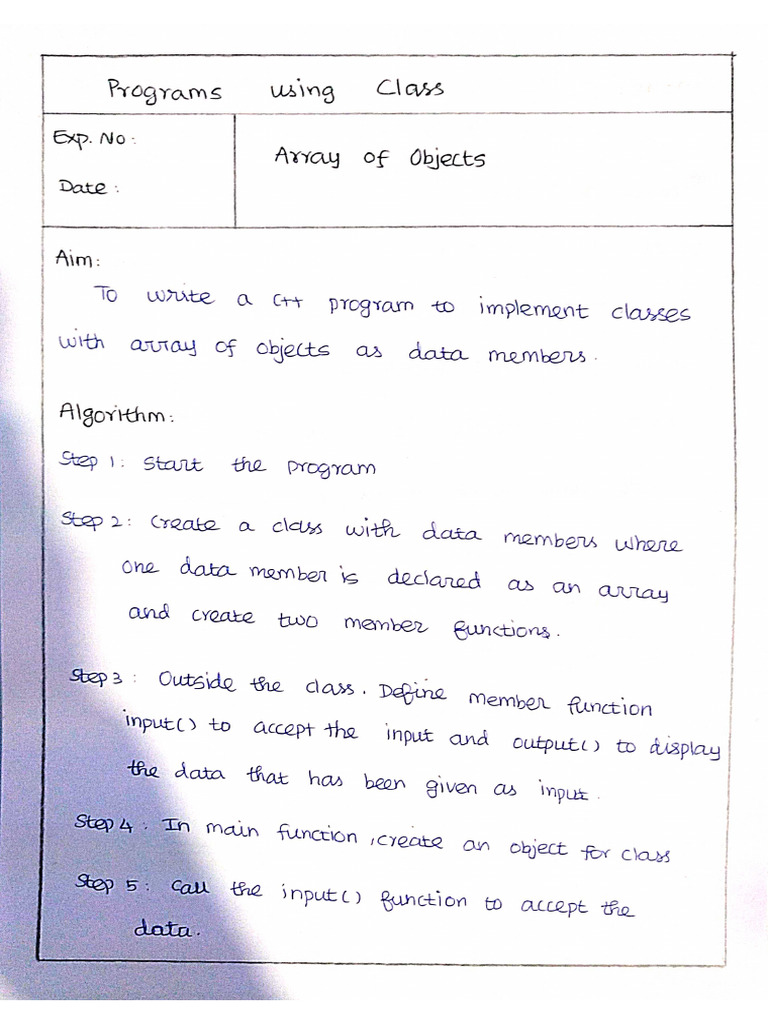 Programs using Class
Exp. No:
Array of Objects
Date:
Aim:
To write a C++ program to implement classes
with array of objects as data members.
Algorithm:
Step 1: Start the program
Step 2: Create a class with data members where
one data member is declared as an array
and create two member functions.
Step 3: Outside the class. Define member function
input() to accept the input and output() to display
the data that has been given as input.
Step 4: In main function, create an object for class
Step 5: Call the input() function to accept the
data.